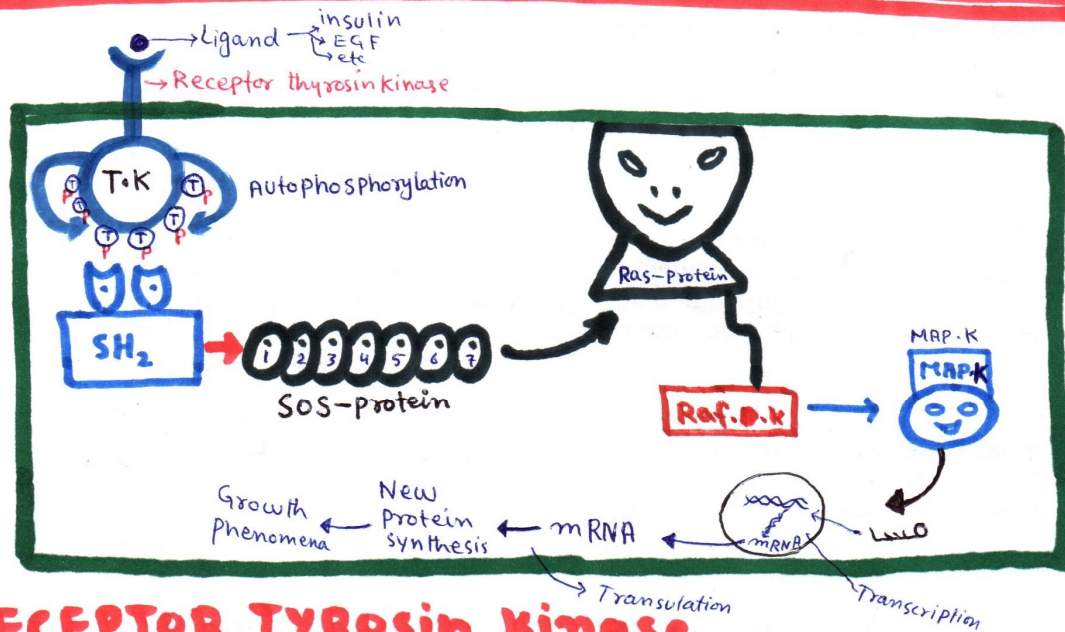 Ligand
insulin
EGF
etc
Receptor thyrosin kinase
T.K
T P
T P
T P
T P
T P
T P
Autophosphorylation
SH2
1 2 3 4 5 6 7
SOS-protein
Ras-protein
Raf.D.K
MAP.K
MAP.K
mRNA
Transcription
mRNA
Transulation
New
Protein
synthesis
Growth
Phenomena
RECEPTOR TYROSin Kinase